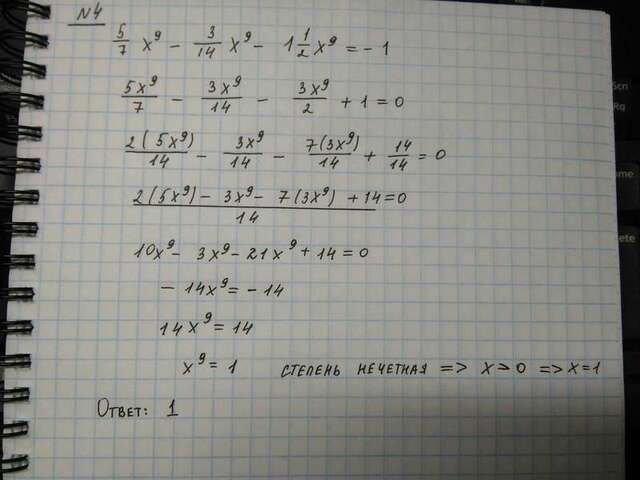 №4
5/7 x⁹ - 3/14 x⁹ - 1 1/2 x⁹ = - 1
5x⁹/7 - 3x⁹/14 - 3x⁹/2 + 1 = 0
2(5x⁹)/14 - 3x⁹/14 - 7(3x⁹)/14 + 14/14 = 0
2(5x⁹) - 3x⁹ - 7(3x⁹) + 14/14 = 0
10x⁹ - 3x⁹ - 21x⁹ + 14 = 0
- 14x⁹ = - 14
14x⁹ = 14
x⁹ = 1 СТЕПЕНЬ НЕЧЕТНАЯ => X > 0 => X = 1
ОТВЕТ: 1